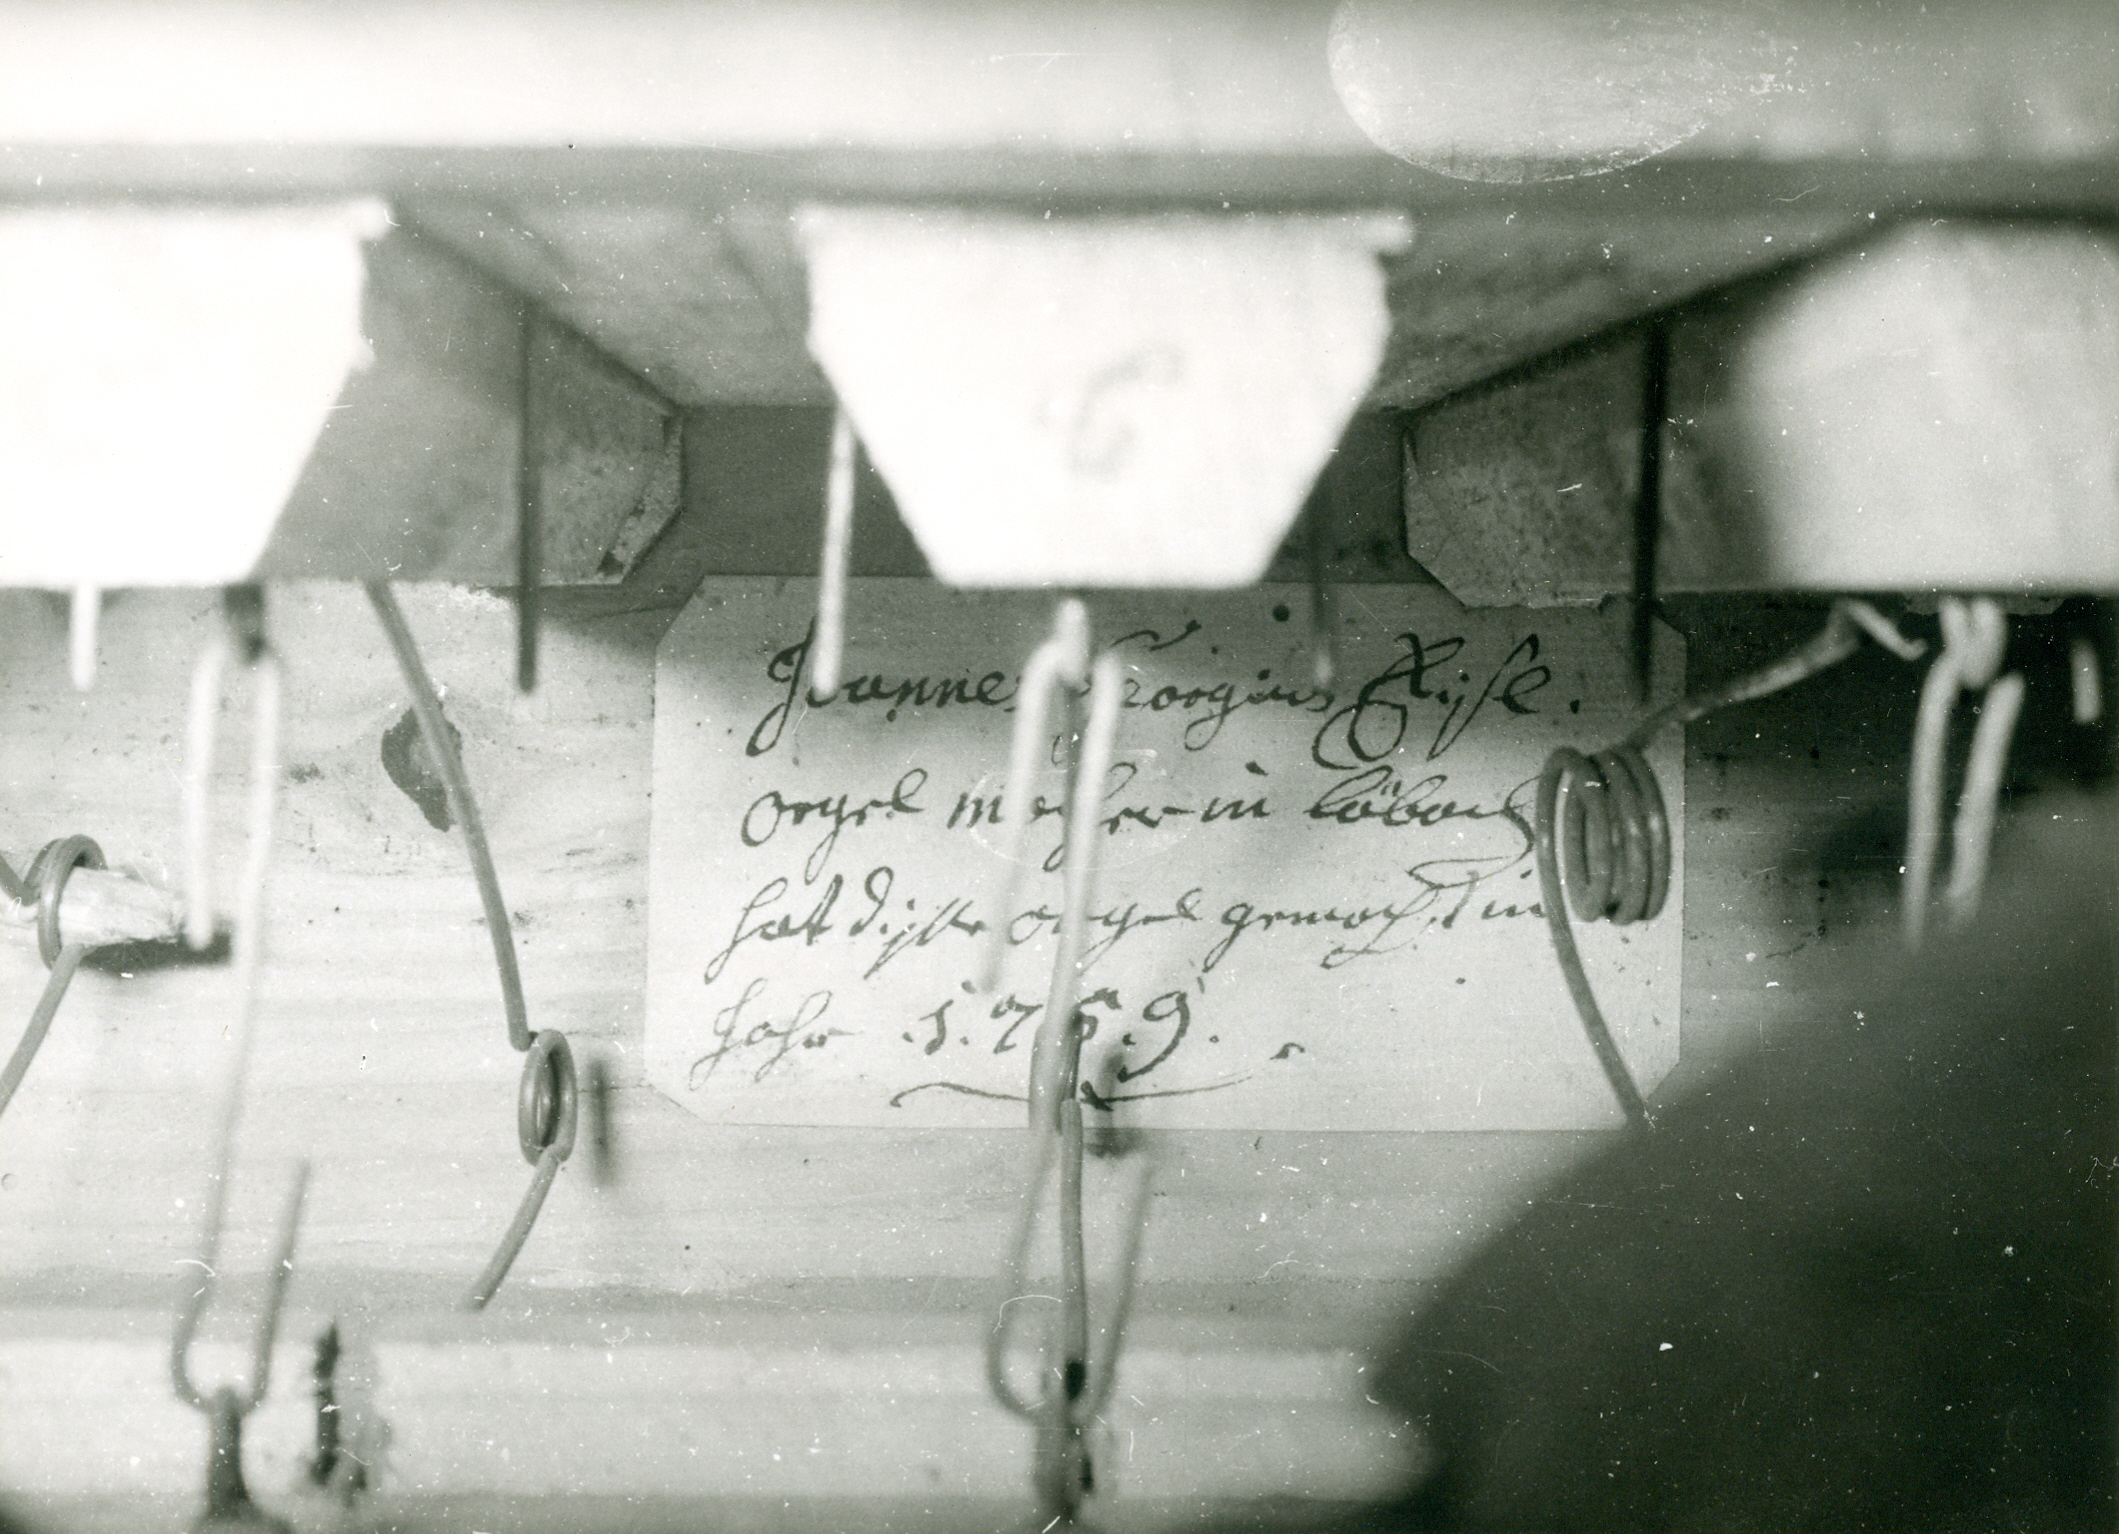 C
Joannes Georgius Eisl.
orgel macher in läbach
hat disse orgel gemacht im
Jahr .1.7.5.9.